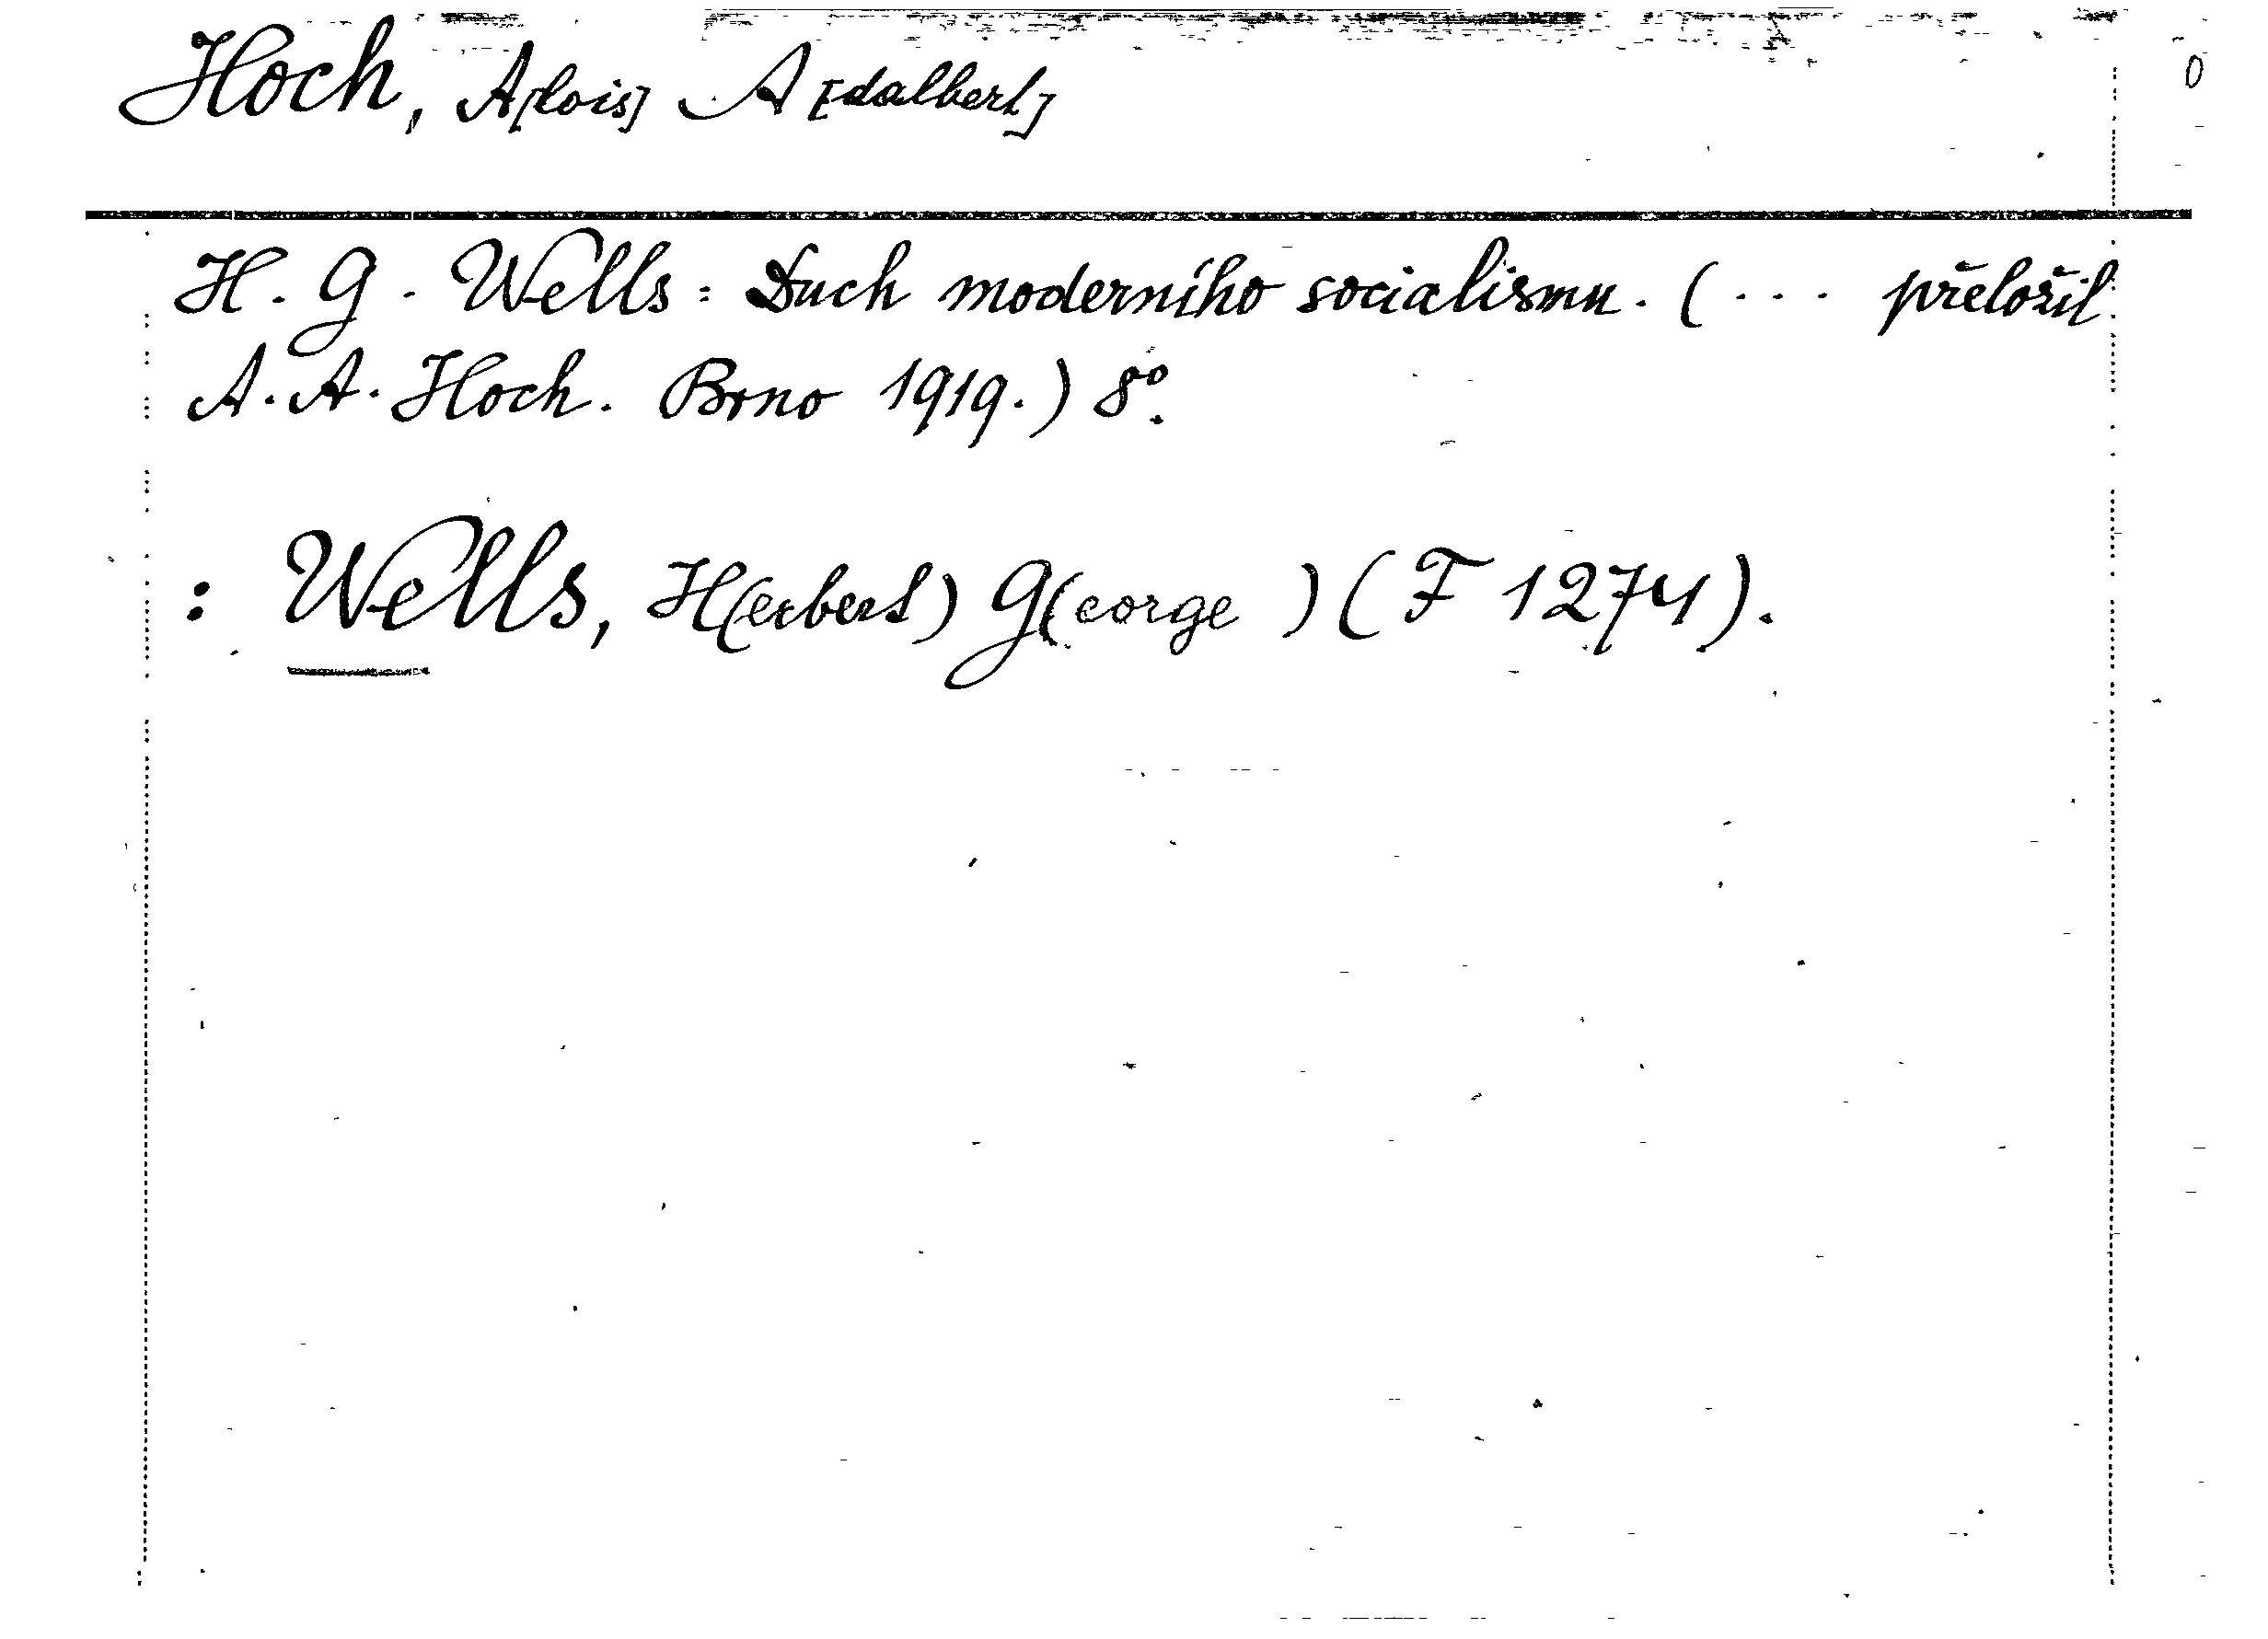 Hoch, A[lois] A[dalbert]
0
H. G. Wells: Duch moderního socialismu. (... přeložil
A. A. Hoch. Brno 1919.) 8º.
: Wells, H(erbert) G(eorge ) (F 1274).